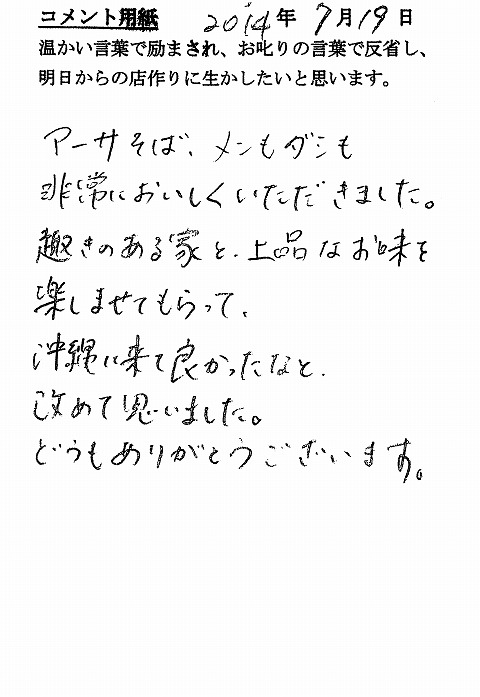 コメント用紙 2014年 7月19日
温かい言葉で励まされ、お叱りの言葉で反省し、
明日からの店作りに生かしたいと思います。
アーサそば、メンもダシも
非常においしくいただきました。
趣きのある家と、上品なお味を
楽しませてもらって、
沖縄に来て良かったなと、
改めて思いました。
どうもありがとうございます。